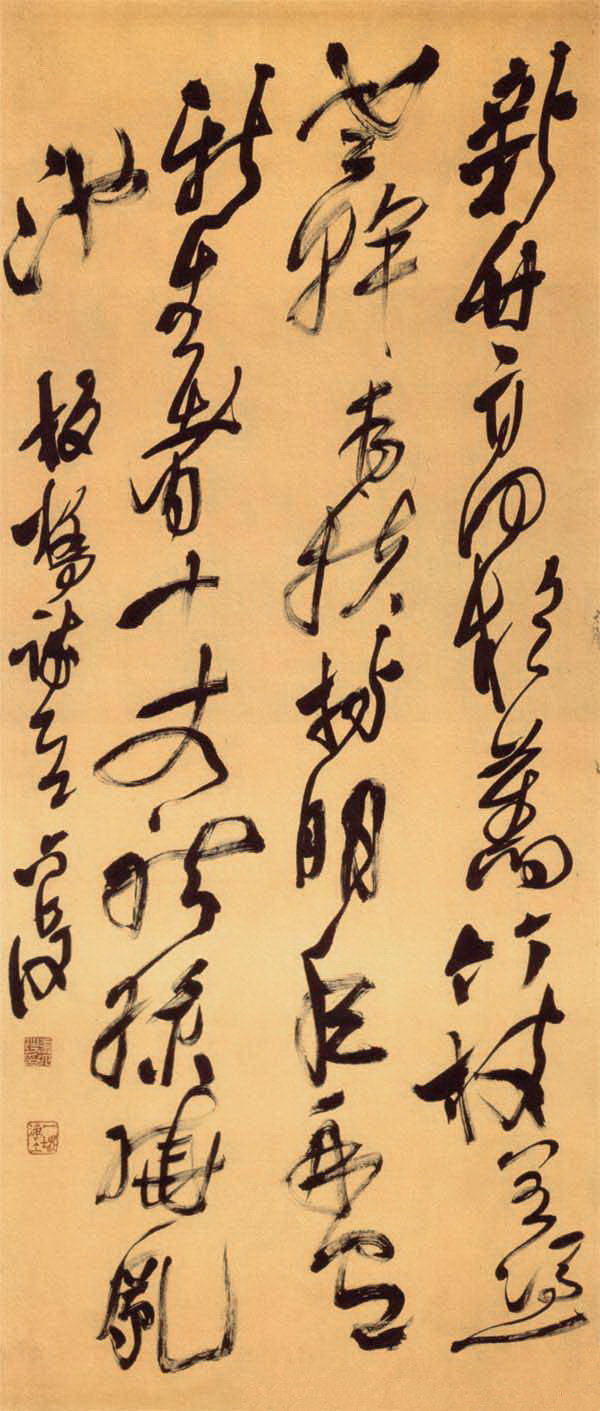 新竹高於舊竹枝全憑
老幹為扶持明年再有
新生者十丈龍孫繞鳳
池 板橋詩